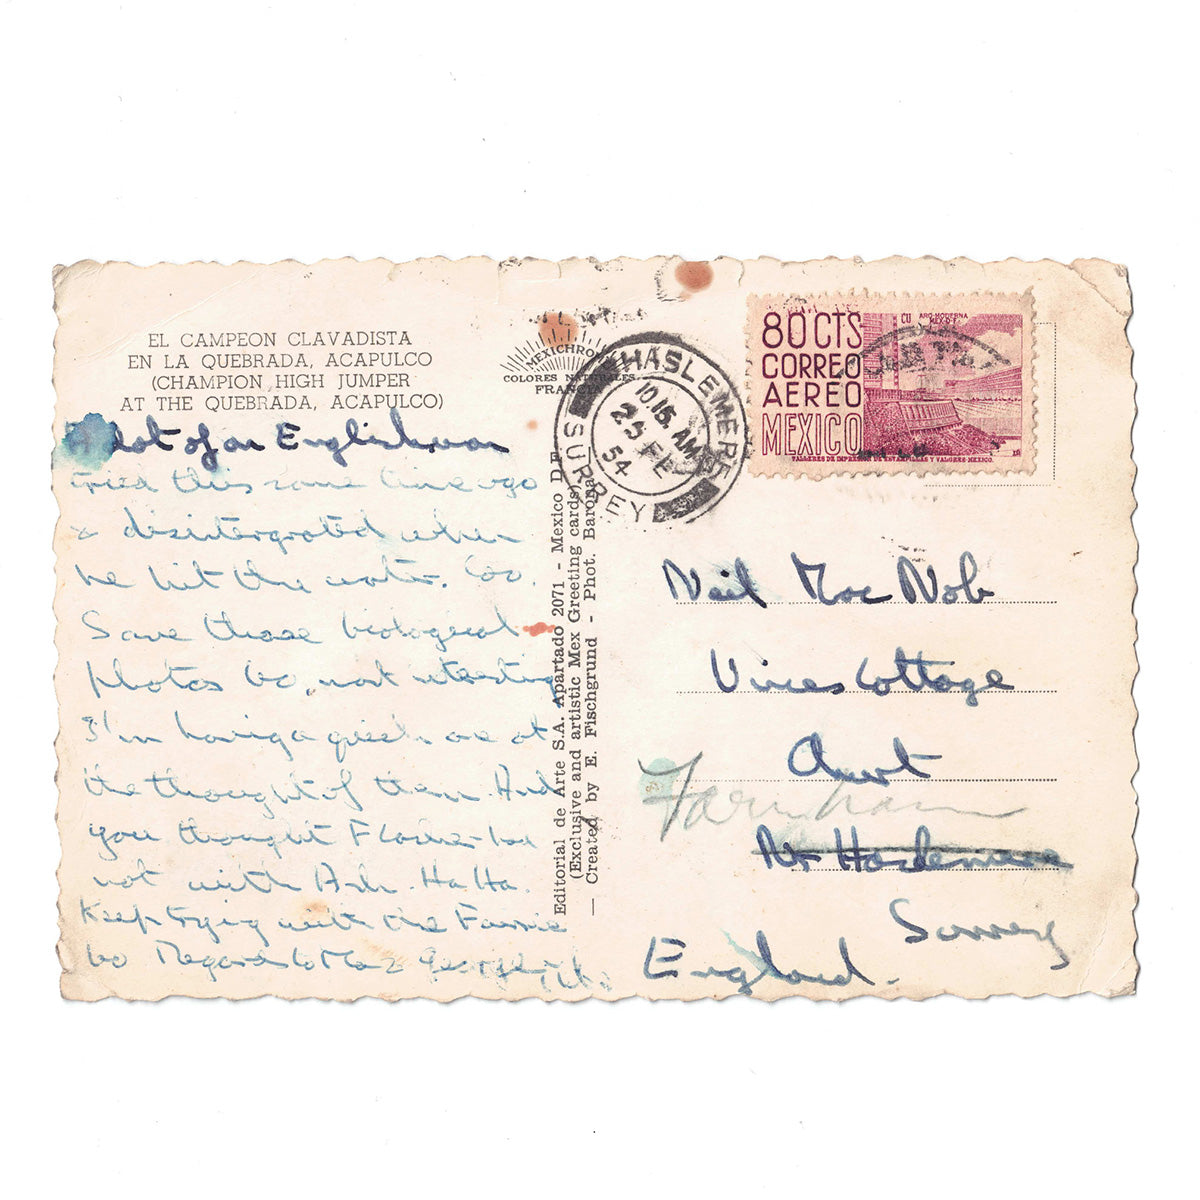 EL CAMPEON CLAVADISTA
EN LA QUEBRADA, ACAPULCO
(CHAMPION HIGH JUMPER
AT THE QUEBRADA, ACAPULCO)
of an Englishman
tried this some time ago
& disintegrated when
he hit the water. Co.
Save those biological
photos Co, most interesting
I'm having a quick one at
the thought of them. And
you thought
not with Ha Ha.
Keep trying with the
Co Regards to
MEXICHROME
COLORES NATURALES
FRANCIA
Editorial de Arte S.A. Apartado 2071 - Mexico D.F.
(Exclusive and artistic Mex Greeting cards)
— Created by E. Fischgrund - Phot. Barona
HASLEMERE
10 15 AM
25 FE
54
SURREY
80 CTS
CORREO
AEREO
MEXICO
CU ARQ. MODERNA
MEX. D.F.
TALLERES DE IMPRESION DE ESTAMPILLAS Y VALORES-MEXICO.
Neil Mac Nab
Vines Cottage
Farnham
Nr Haslemere
Surrey
England.